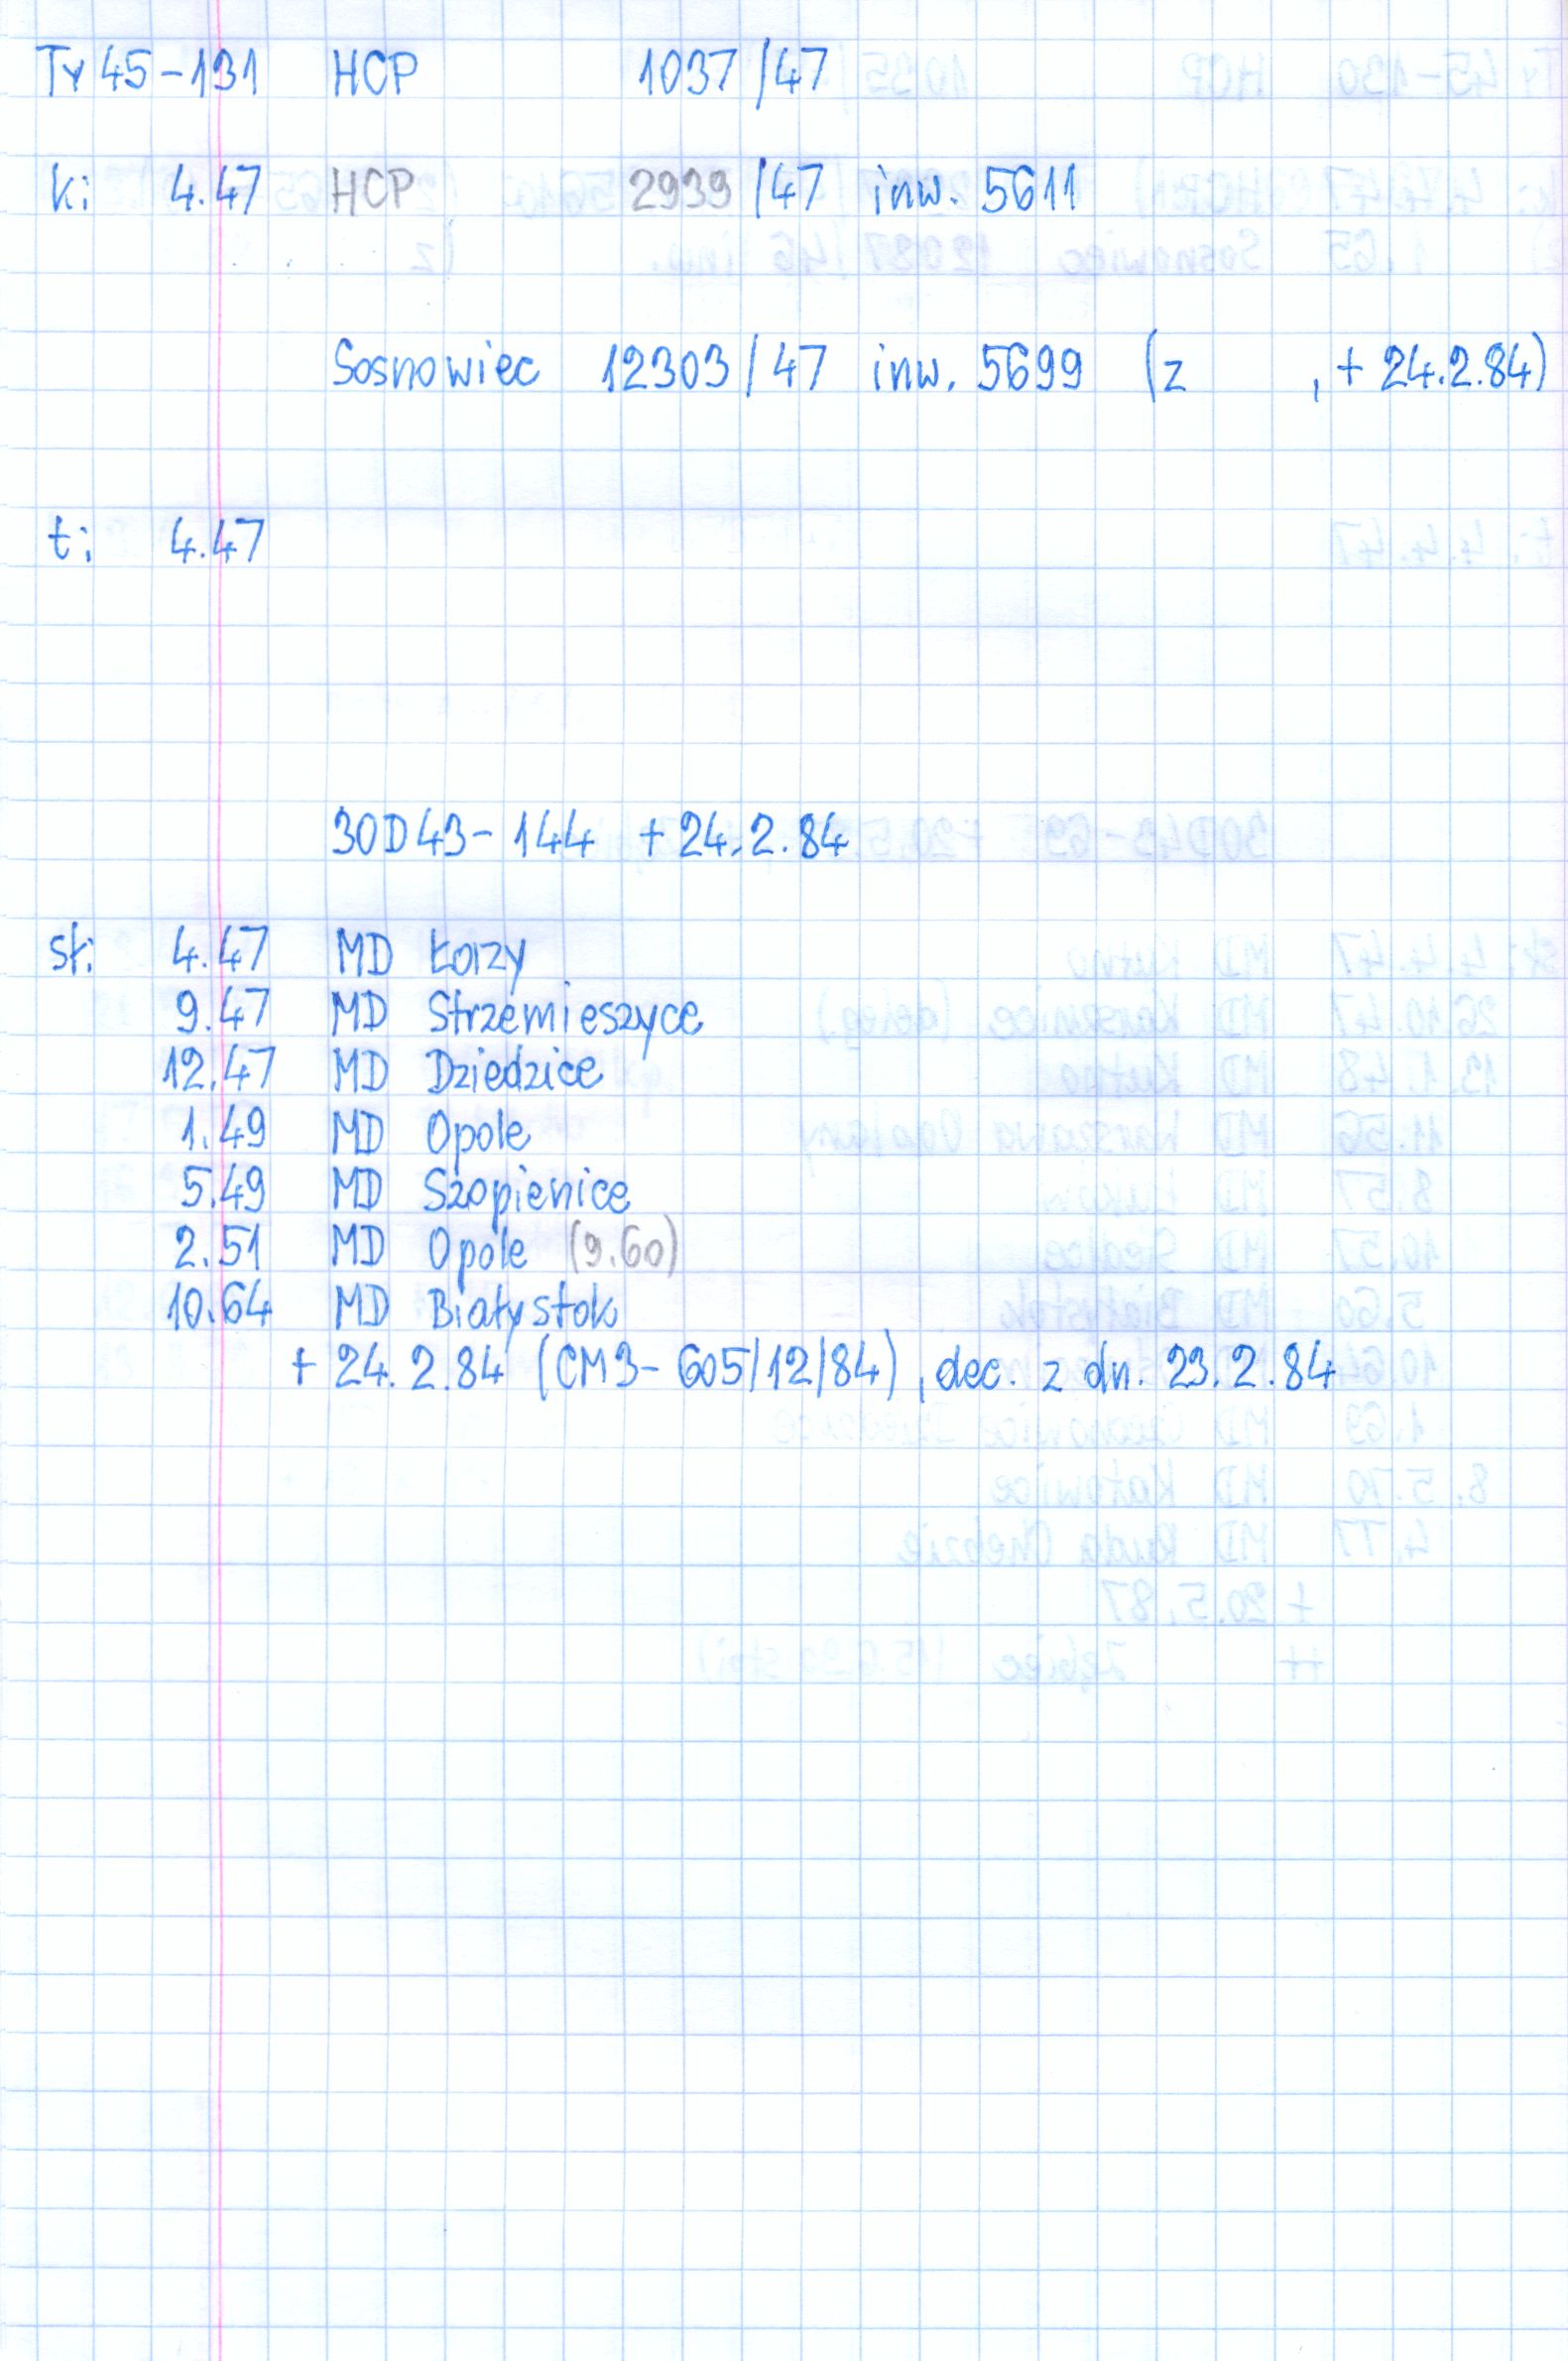 Ty45-131 HCP 1037/47
k: 4.47 HCP 2939/47 inw. 5611
Sosnowiec 12303/47 inw. 5699 (z , + 24.2.84)
t: 4.47
30D43-144 + 24.2.84
sł: 4.47 MD Łazy
9.47 MD Strzemieszyce
12.47 MD Dziedzice
1.49 MD Opole
5.49 MD Szopienice
2.51 MD Opole (9.60)
10.64 MD Białystok
+ 24.2.84 (CM3-605/12/84), dec. z dn. 23.2.84